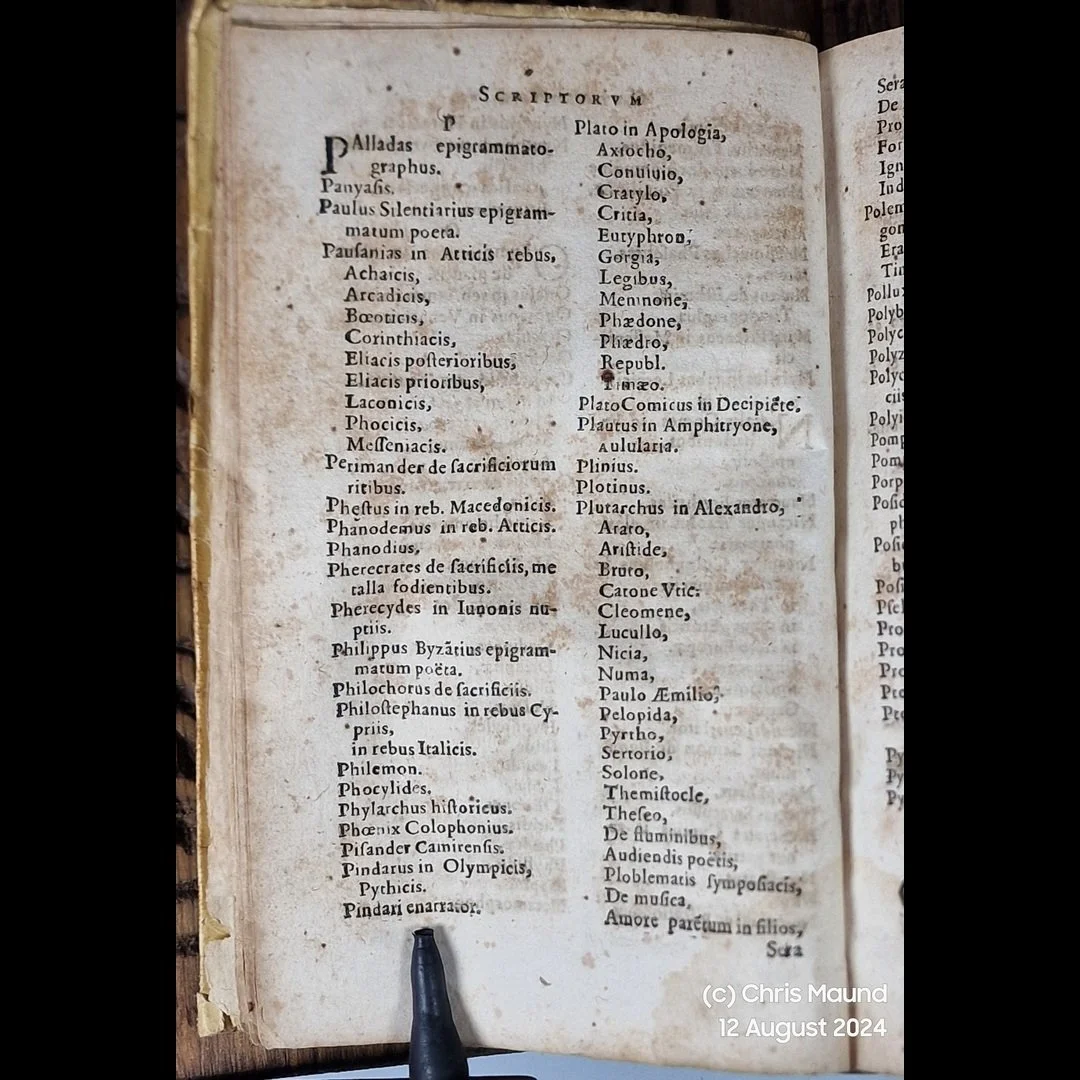 SCRIPTORVM
P
PAlladas epigrammato-
graphus.
Panyasis.
Paulus Silentiarius epigram-
matum poeta.
Pausanias in Atticis rebus,
Achaicis,
Arcadicis,
Bœoticis,
Corinthiacis,
Eliacis posterioribus,
Eliacis prioribus,
Laconicis,
Phocicis,
Messeniacis.
Perimander de sacrificiorum
ritibus.
Phęstus in reb. Macedonicis.
Phanodemus in reb. Atticis.
Phanodius.
Pherecrates de sacrificiis, me
talla fodientibus.
Pherecydes in Iunonis nu-
ptiis.
Philippus Byzãtius epigram-
matum poëta.
Philochorus de sacrificiis.
Philostephanus in rebus Cy-
priis,
in rebus Italicis.
Philemon.
Phocylides.
Phylarchus historicus.
Phœnix Colophonius.
Pisander Camirensis.
Pindarus in Olympicis,
Pythicis.
Pindari enarrator.
Plato in Apologia,
Axiocho,
Conuiuio,
Cratylo,
Critia,
Eutyphron,
Gorgia,
Legibus,
Memnone,
Phædone,
Phædro,
Republ.
Timæo.
Plato Comicus in Decipiēte.
Plautus in Amphitryone,
Aulularia.
Plinius.
Plotinus.
Plutarchus in Alexandro,
Arato,
Aristide,
Bruto,
Catone Vtic.
Cleomene,
Lucullo,
Nicia,
Numa,
Paulo Æmilio,
Pelopida,
Pyrrho,
Sertorio,
Solone,
Themistocle,
Theseo,
De fluminibus,
Audiendis poëtis,
Ploblematis symposiacis,
De musica,
Amore parētum in filios,
Sera
Sera
De
Pro
For
Ign
Ind
Polem
gon
Era
Tim
Pollux
Polyb
Polyc
Polyz
Polyc
ciis
Polyi
Pomp
Pom
Porp
Posid
ph
Posi
b
Posi
Psel
Pro
Pro
Pro
Pro
Pto
Py
Py
Py
(c) Chris Maund
12 August 2024